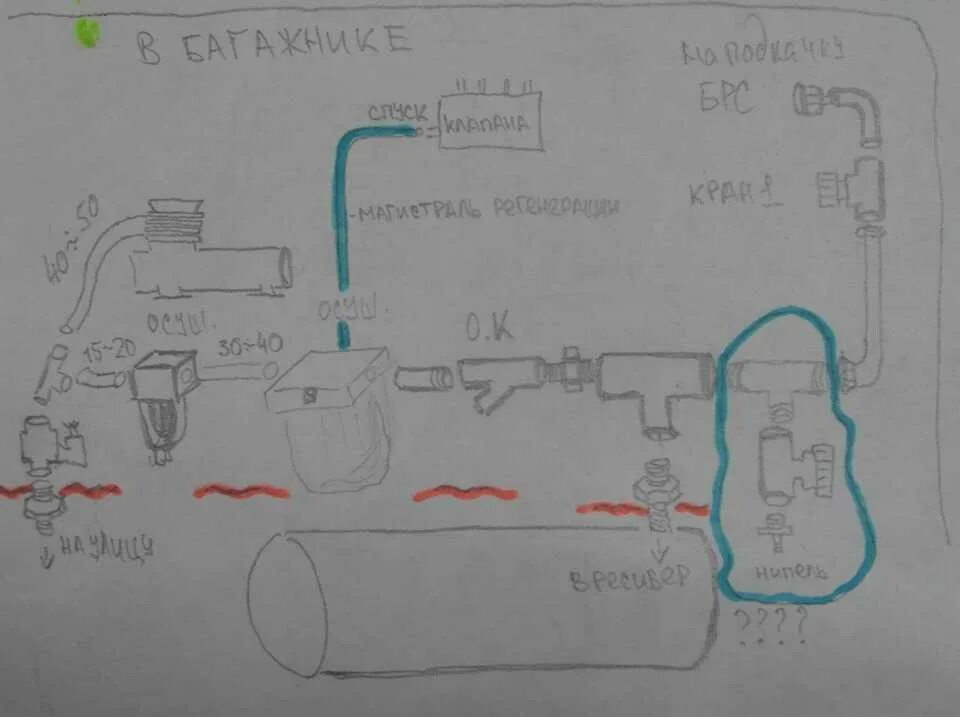 В БАГАЖНИКЕ
на подкачку
БРС
СПУСК
КЛАПАНА
КРАН 1
МАГИСТРАЛЬ РЕГЕНЕРАЦИИ
40÷50
ОСУШ.
ОСУШ.
О.К
15÷20
30÷40
НА УЛИЦУ
В РЕСИВЕР
НИПЕЛЬ
????